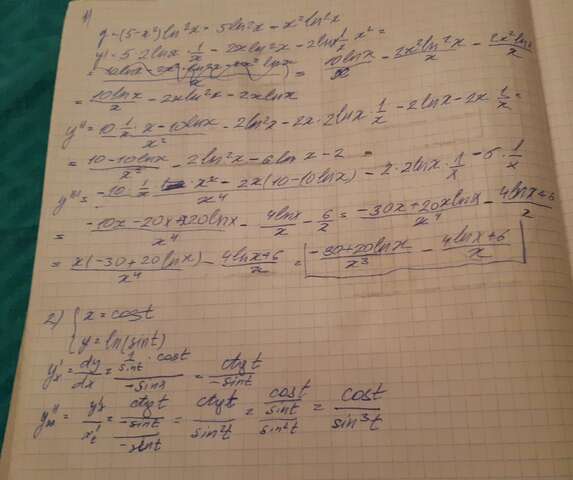 1)
y = (5-x²)ln²x = 5ln²x - x²ln²x
y' = 5·2lnx·1/x - 2xln²x - 2lnx 1/x x² =
= = 10lnx/x - 2x²ln²x/x - 2x²lnx/x
= 10lnx/x - 2xln²x - 2xlnx
y'' = (10 1/x · x - 10lnx)/x² - 2ln²x - 2x·2lnx 1/x - 2lnx - 2x 1/x =
= (10-10lnx)/x² - 2ln²x - 6lnx - 2 =
y''' = (-10·1/x · x² - 2x(10-10lnx))/x⁴ - 2·2lnx·1/x - 6·1/x
= (-10x-20x+20lnx)/x⁴ - 4lnx/x - 6/x = (-30x+20xlnx)/x⁴ - (4lnx+6)/x
= x(-30+20lnx)/x⁴ - (4lnx+6)/x = (-30+20lnx)/x³ - (4lnx+6)/x
2) { x = cost
y = ln(sint)
y'ₓ = dy/dx = (1/sint · cost)/(-sint) = ctgt/(-sint)
y''ₓₓ = y'ₓ/x'ₜ = (ctgt/(-sint))/(-sint) = ctgt/sin²t = (cost/sint)/sin²t = cost/sin³t